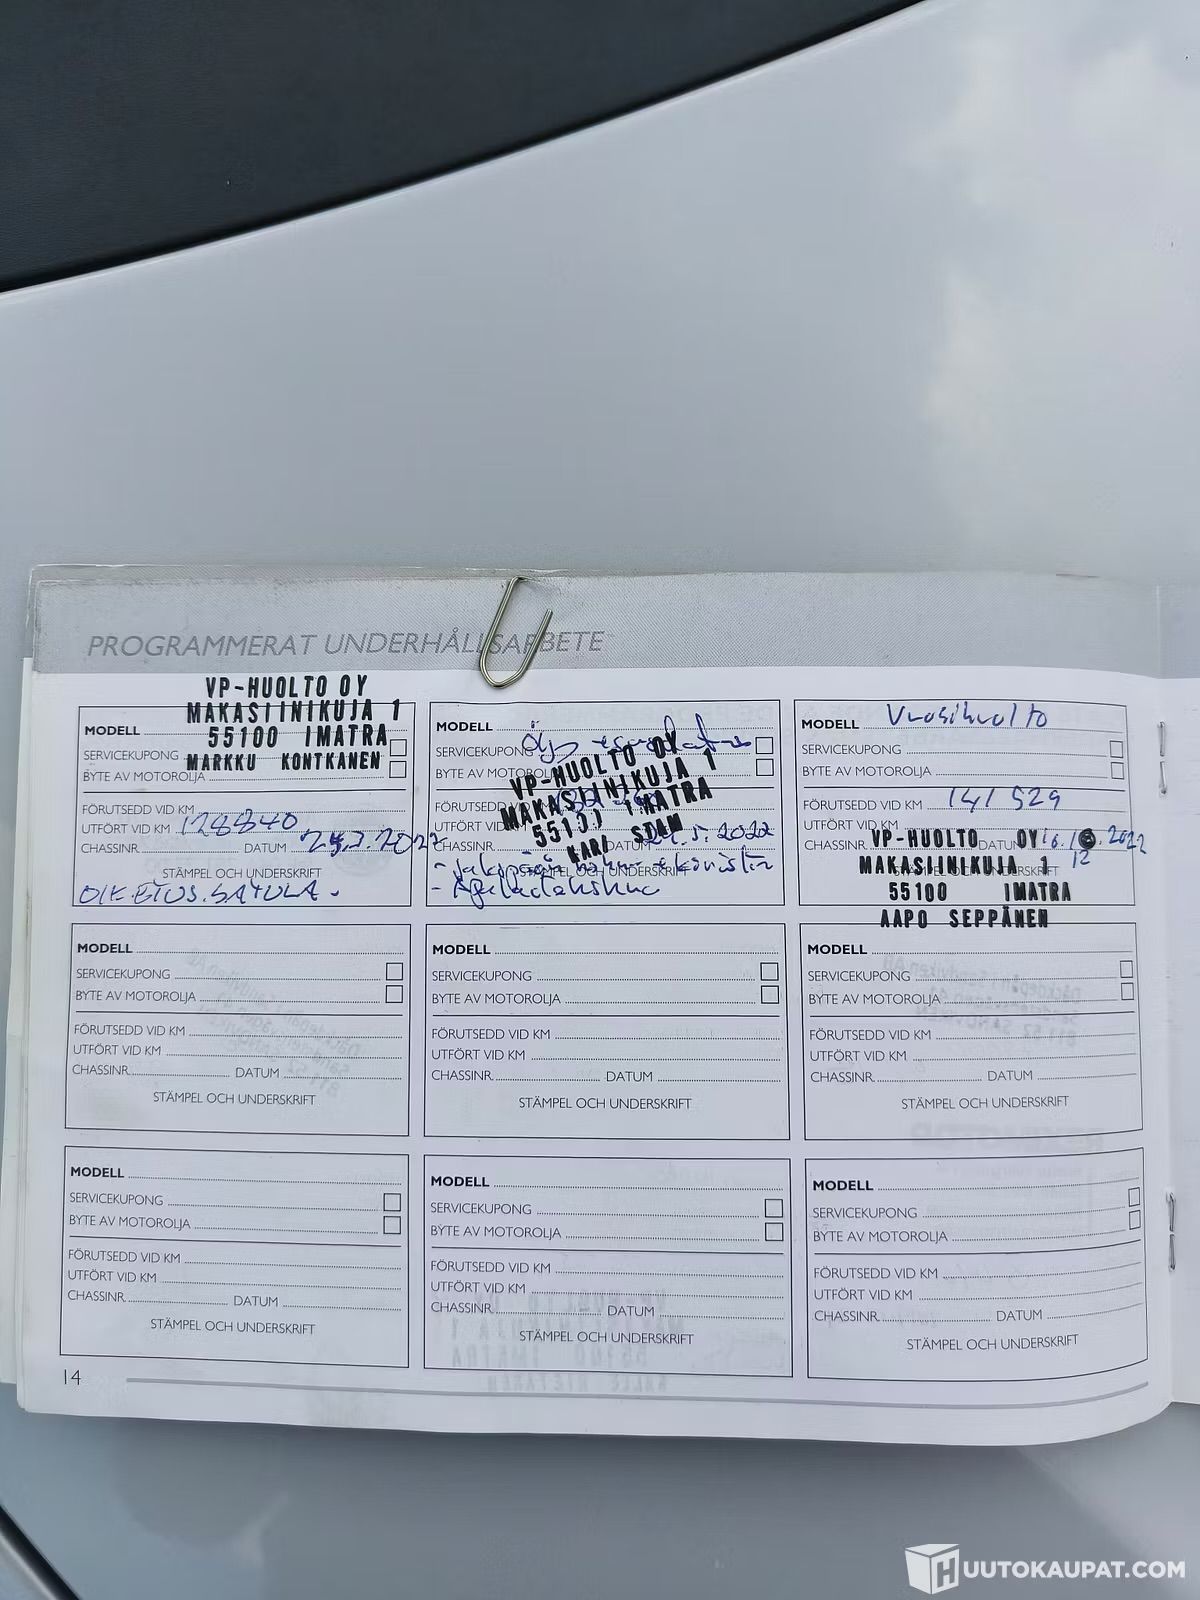 PROGRAMMERAT UNDERHÅLLSARBETE
VP-HUOLTO OY
MAKASIINIKUJA 1
55100 IMATRA
MARKKU KONTKANEN
MODELL
SERVICEKUPONG
BYTE AV MOTOROLJA
FÖRUTSEDD VID KM
UTFÖRT VID KM 128840
CHASSINR. DATUM 2022
STÄMPEL OCH UNDERSKRIFT
OIK.ETUS.SATULA.
MODELL
SERVICEKUPONG
BYTE AV MOTOROLJA
VP-HUOLTO OY
MAKASIINIKUJA 1
55100 IMATRA
KARI
FÖRUTSEDD VID KM
UTFÖRT VID KM
CHASSINR. DATUM 5.2022
STÄMPEL OCH UNDERSKRIFT
MODELL Vuosihuolto
SERVICEKUPONG
BYTE AV MOTOROLJA
FÖRUTSEDD VID KM 141 529
UTFÖRT VID KM
CHASSINR. DATUM 16. 12 .2022
VP-HUOLTO OY
MAKASIINIKUJA 1
55100 IMATRA
AAPO SEPPÄNEN
STÄMPEL OCH UNDERSKRIFT
MODELL
SERVICEKUPONG
BYTE AV MOTOROLJA
FÖRUTSEDD VID KM
UTFÖRT VID KM
CHASSINR. DATUM
STÄMPEL OCH UNDERSKRIFT
MODELL
SERVICEKUPONG
BYTE AV MOTOROLJA
FÖRUTSEDD VID KM
UTFÖRT VID KM
CHASSINR. DATUM
STÄMPEL OCH UNDERSKRIFT
MODELL
SERVICEKUPONG
BYTE AV MOTOROLJA
FÖRUTSEDD VID KM
UTFÖRT VID KM
CHASSINR. DATUM
STÄMPEL OCH UNDERSKRIFT
MODELL
SERVICEKUPONG
BYTE AV MOTOROLJA
FÖRUTSEDD VID KM
UTFÖRT VID KM
CHASSINR. DATUM
STÄMPEL OCH UNDERSKRIFT
MODELL
SERVICEKUPONG
BYTE AV MOTOROLJA
FÖRUTSEDD VID KM
UTFÖRT VID KM
CHASSINR. DATUM
STÄMPEL OCH UNDERSKRIFT
MODELL
SERVICEKUPONG
BYTE AV MOTOROLJA
FÖRUTSEDD VID KM
UTFÖRT VID KM
CHASSINR. DATUM
STÄMPEL OCH UNDERSKRIFT
14
HUUTOKAUPAT.COM